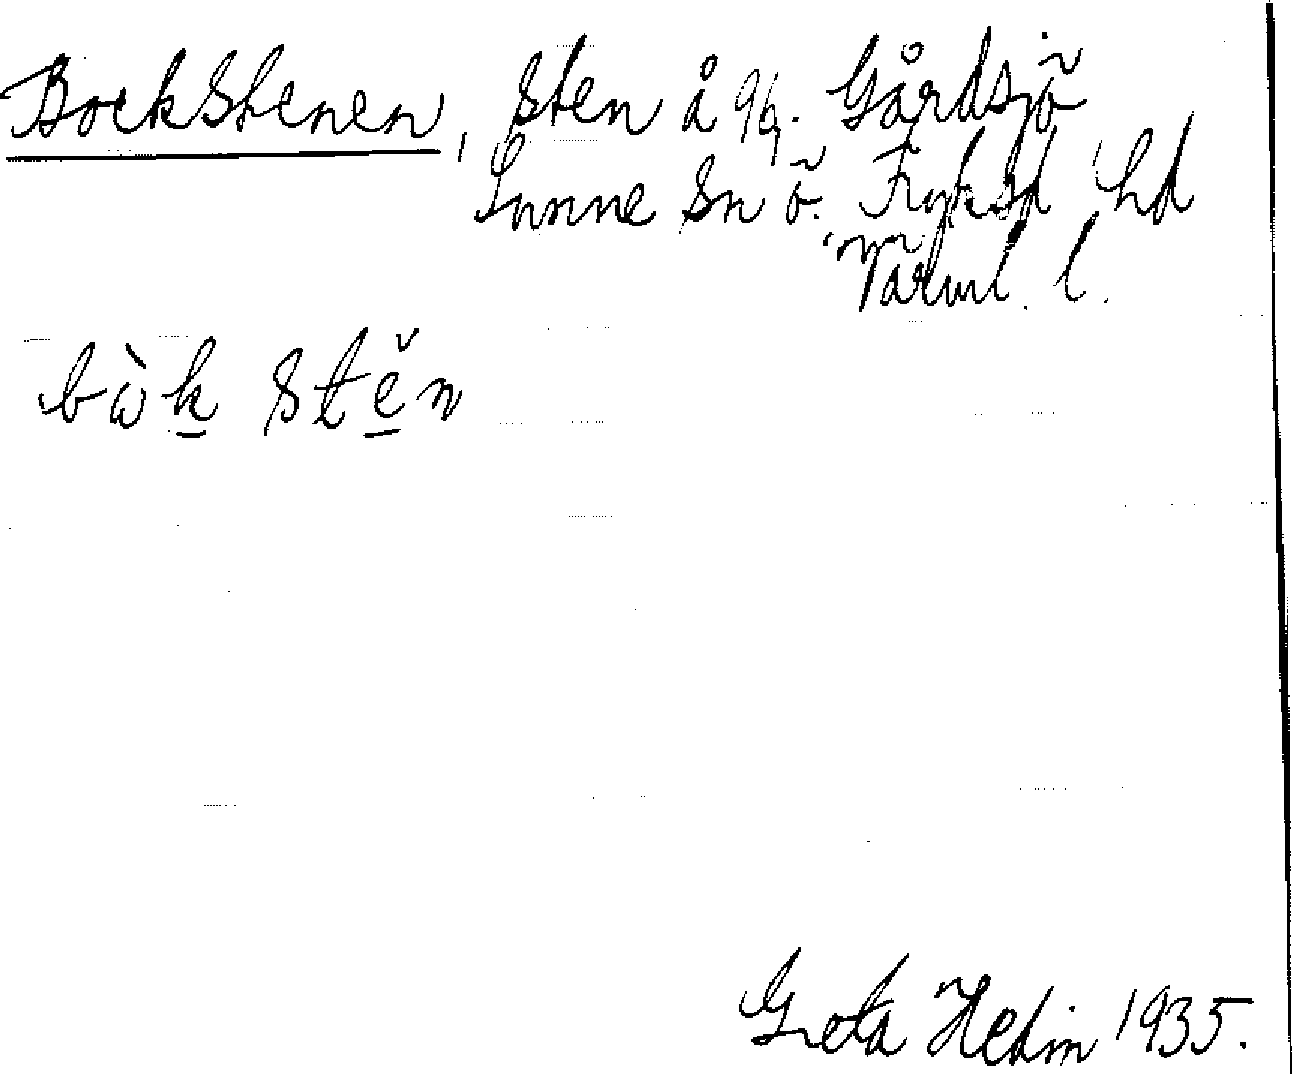 Bockstenen, sten å äg. Gårdsjö
Sunne sn Ö. Fryksd hd
Värml. l.
bòk stěn
Greta Hedin 1935.